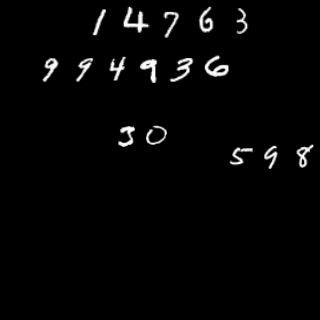 14763
994936
30
598